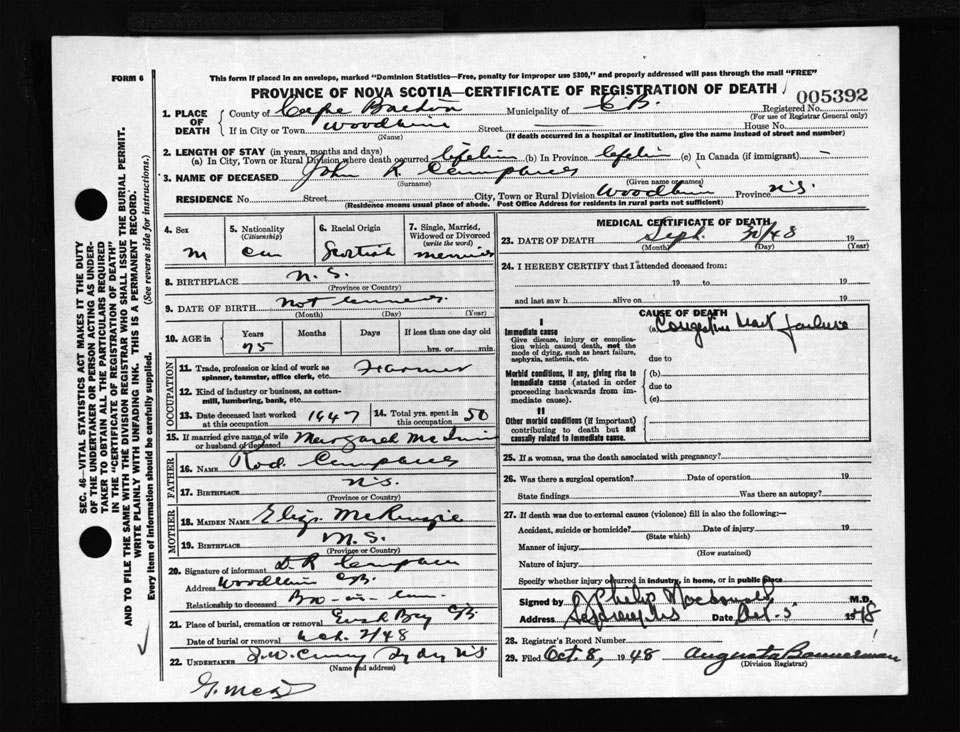 FORM 6
This form if placed in an envelope, marked "Dominion Statistics—Free, penalty for improper use $300," and properly addressed will pass through the mail "FREE"
PROVINCE OF NOVA SCOTIA—CERTIFICATE OF REGISTRATION OF DEATH
005392
1. PLACE OF DEATH
County of Cape Breton Municipality of C.B. Registered No.
(For use of Registrar General only)
If in City or Town Woodbine Street House No.
(Name) (If death occurred in a hospital or institution, give the name instead of street and number)
2. LENGTH OF STAY (in years, months and days)
(a) In City, Town or Rural Division where death occurred lifetime (b) In Province lifetime (c) In Canada (if immigrant) —
3. NAME OF DECEASED John R
(Surname) (Given name or names)
RESIDENCE No. Street City, Town or Rural Division Woodbine Province N.S.
(Residence means usual place of abode. Post Office Address for residents in rural parts not sufficient)
4. Sex M
5. Nationality (Citizenship) Can
6. Racial Origin Scottish
7. Single, Married, Widowed or Divorced (write the word)
8. BIRTHPLACE N.S.
(Province or Country)
9. DATE OF BIRTH not
(Month) (Day) (Year)
10. AGE in Years Months Days If less than one day old
75 hrs. or min.
OCCUPATION
11. Trade, profession or kind of work as spinner, teamster, office clerk, etc. Farmer
12. Kind of industry or business, as cotton-mill, lumbering, bank, etc.
13. Date deceased last worked at this occupation 1947
14. Total yrs. spent in this occupation 50
15. If married give name of wife or husband of deceased Margaret
FATHER
16. NAME Rod.
17. BIRTHPLACE N.S.
(Province or Country)
MOTHER
18. MAIDEN NAME Eliz. McKenzie
19. BIRTHPLACE N.S.
(Province or Country)
20. Signature of informant D. R.
Address Woodbine C.B.
Relationship to deceased Bro-in-law
21. Place of burial, cremation or removal East Bay C.B.
Date of burial or removal Oct. 2/48
22. UNDERTAKER
(Name and address)
MEDICAL CERTIFICATE OF DEATH
23. DATE OF DEATH Sept. 30/48 19
(Month) (Day) (Year)
24. I HEREBY CERTIFY that I attended deceased from:
19 to 19
and last saw h alive on 19
CAUSE OF DEATH
I
Immediate cause
Give disease, injury or complication which caused death, not the mode of dying, such as heart failure, asphyxia, asthenia, etc.
(a) Congestive Heart failure
due to
Morbid conditions, if any, giving rise to immediate cause (stated in order proceeding backwards from immediate cause).
(b)
due to
(c)
II
Other morbid conditions (if important) contributing to death but not causally related to immediate cause.
25. If a woman, was the death associated with pregnancy?
26. Was there a surgical operation? Date of operation 19
State findings Was there an autopsy?
27. If death was due to external causes (violence) fill in also the following:—
Accident, suicide or homicide? Date of injury 19
(State which)
Manner of injury
(How sustained)
Nature of injury
Specify whether injury occurred in industry, in home, or in public place
Signed by Philip Macdonald M.D.
Address Date Oct-5 1948
28. Registrar's Record Number
29. Filed Oct. 8, 1948 Augusta Bannerman
(Division Registrar)
SEC. 46—VITAL STATISTICS ACT MAKES IT THE DUTY
OF THE UNDERTAKER OR PERSON ACTING AS UNDER-
TAKER TO OBTAIN ALL THE PARTICULARS REQUIRED
IN THE "CERTIFICATE OF REGISTRATION OF DEATH"
AND TO FILE THE SAME WITH THE DIVISION REGISTRAR WHO SHALL ISSUE THE BURIAL PERMIT.
WRITE PLAINLY WITH UNFADING INK. THIS IS A PERMANENT RECORD.
Every item of information should be carefully supplied. (See reverse side for instructions.)